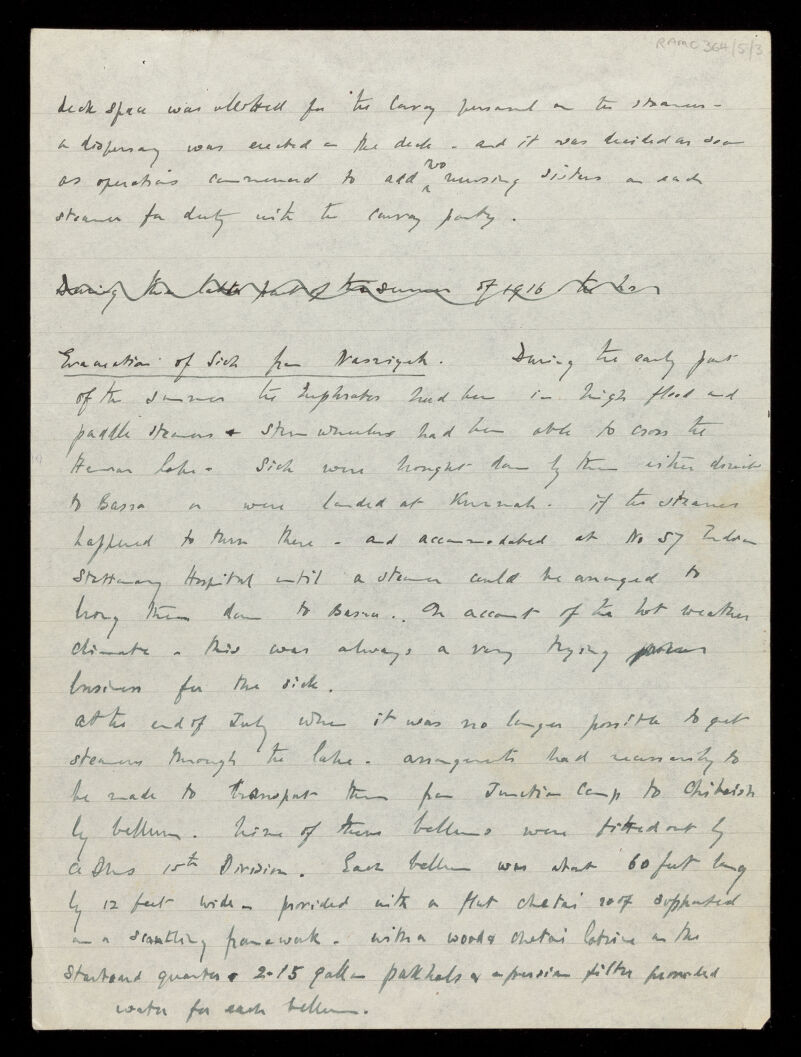 RAMC 364/5/3
deck space was allotted for the Convoy personnel on the steamers -
a dispensary was erected on the deck - and it was decided as soon
as operations commenced to add two nursing sisters on each
steamer for duty with the convoy party.
During the latter part of the summer of 1916 the
Evacuation of Sick from Nasriyeh. During the early part
of the summer the Euphrates had been in high flood and
paddle steamers & stern wheelers had been able to cross the
Hamar lake - Sick were brought down by them either direct
to Basra or were landed at Kurnah - if the steamer
happened to turn there - and accommodated at No 57 Indian
Stationary Hospital until a steamer could be arranged to
bring them down to Basra. On account of the hot weather
climate - this was always a very trying
business for the sick.
At the end of July when it was no longer possible to get
steamers through the lake - arrangements had necessarily to
be made to transport them from Junction Camp to Chibaish
by bellum. Nine of these bellums were fitted out by
ADMS 15th Division. Each bellum was about 60 feet long
by 12 feet wide - provided with a flat chetai roof supported
on a scantling framework - with a wood & chetai latrine on the
starboard quarter & 2-15 gallon pakhals & a persian filter provided
water for each bellum.